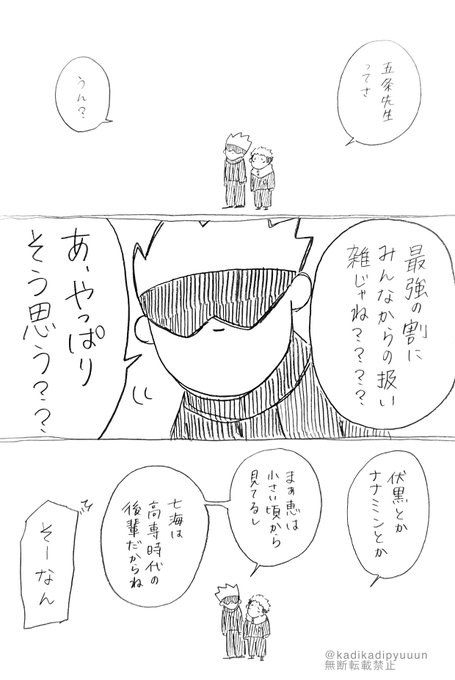 五条先生
ってさ
うん?
最強の割に
みんなからの扱い
雑じゃね????
あ、やっぱり
そう思う??
伏黒とか
ナナミンとか
まぁ恵は
小さい頃から
見てるし
七海は
高専時代の
後輩だからね
そーなん
@kadikadipyuuun
無断転載禁止